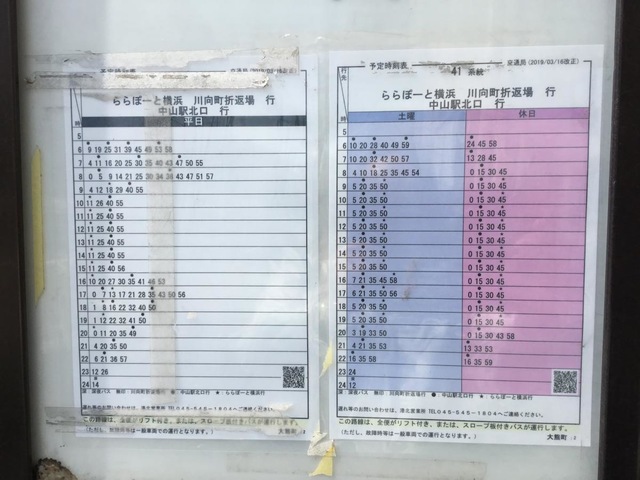 予定時刻表
交通局 (2019/03/16改正)
ららぽーと横浜 川向町折返場 行
中山駅北口 行
時
平日
5
6 9 19 25 31 39 45 49 53 58
7 4 11 16 20 25 30 35 40 43 47 50 55
8 0 5 9 14 21 25 30 34 38 43 47 51 57
9 4 12 18 29 40 55
10 11 26 40 55
11 11 25 40 55
12 11 25 40 55
13 11 25 40 55
14 11 25 40 55
15 11 25 40 56
16 10 20 27 30 35 41 46 53
17 0 7 13 17 21 28 35 43 50 56
18 1 8 16 22 32 40 50
19 1 12 22 32 41 50
20 0 11 20 35 49
21 4 20 35 50
22 6 21 36 57
23 12 26
24 14
深夜バス 無印:川向町折返行 ●:中山駅北口行 ★:ららぽーと横浜行
遅れ等のお問い合わせは、港北営業所 TEL045-545-1804へご連絡ください。
この路線は、全便がリフト付き、または、スロープ板付きバスが運行します。
(ただし、故障時等は一般車両での運行となります。)
大熊町
行先
予定時刻表
41 系統
交通局 (2019/03/16改正)
ららぽーと横浜 川向町折返場 行
中山駅北口 行
時
土曜
休日
5
6 10 20 28 40 49 59
24 45 58
7 10 20 32 42 50 57
13 28 45
8 4 10 18 25 35 45 54
0 15 30 45
9 5 20 35 50
0 15 30 45
10 5 20 35 50
0 15 30 45
11 5 20 35 50
0 15 30 45
12 5 20 35 50
0 15 30 45
13 5 20 35 50
0 15 30 45
14 5 20 35 50
0 15 30 45
15 5 20 35 50
0 15 30 45
16 7 21 35 45 58
0 15 30 45
17 6 21 35 50 56
0 15 30 45
18 5 20 35 50
0 15 30 45
19 5 20 35 50
0 15 30 45
20 3 19 33 50
0 15 30 43 58
21 4 21 35 53
13 33 53
22 16 35 58
16 35 59
23 24
24
深夜バス 無印:川向町折返行 ●:中山駅北口行 ★:ららぽーと横浜行
遅れ等のお問い合わせは、港北営業所 TEL045-545-1804へご連絡ください。
この路線は、全便がリフト付き、または、スロープ板付きバスが運行します。
(ただし、故障時等は一般車両での運行となります。)
大熊町